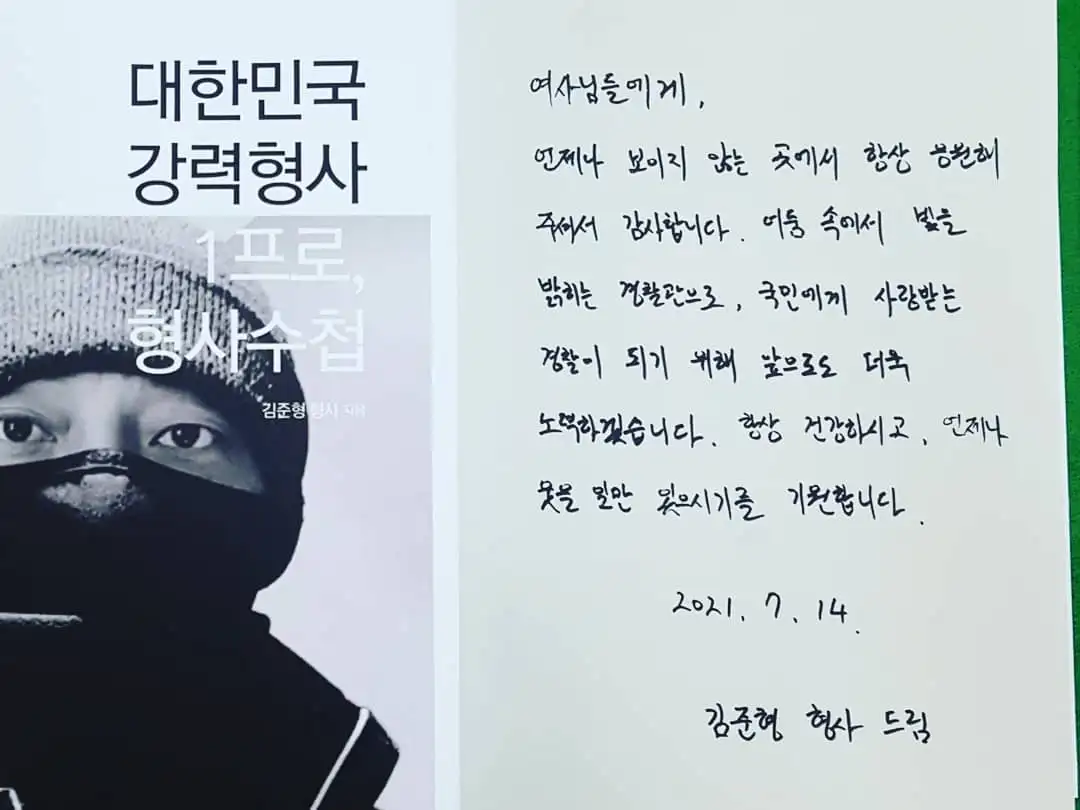 대한민국
강력형사
1프로,
형사수첩
김준형 형사 지음
여사님들에게,
언제나 보이지 않는 곳에서 항상 응원해
주셔서 감사합니다. 어둠 속에서 빛을
밝히는 경찰관으로, 국민에게 사랑받는
경찰이 되기 위해 앞으로도 더욱
노력하겠습니다. 항상 건강하시고, 언제나
웃을 일만 있으시기를 기원합니다.
2021. 7. 14.
김준형 형사 드림